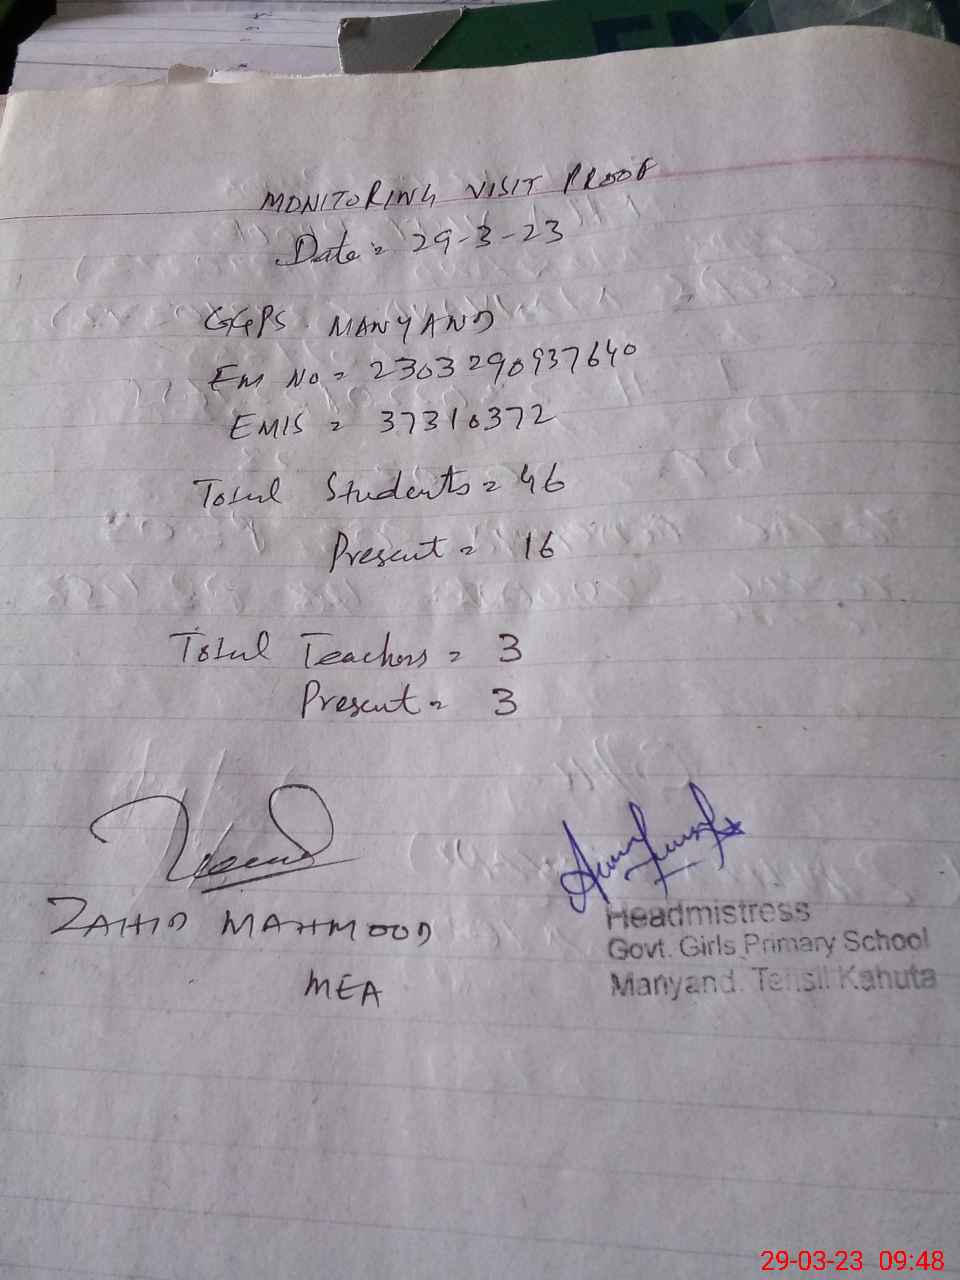 MONITORING VISIT PROOF
Date = 29-3-23
GGPS MANYAND
Em No = 2303290937640
EMIS = 37310372
Total Students = 46
Present = 16
Total Teachers = 3
Present = 3
ZAHID MAHMOOD
MEA
Headmistress
Govt. Girls Primary School
Manyand. Tehsil Kahuta
29-03-23 09:48